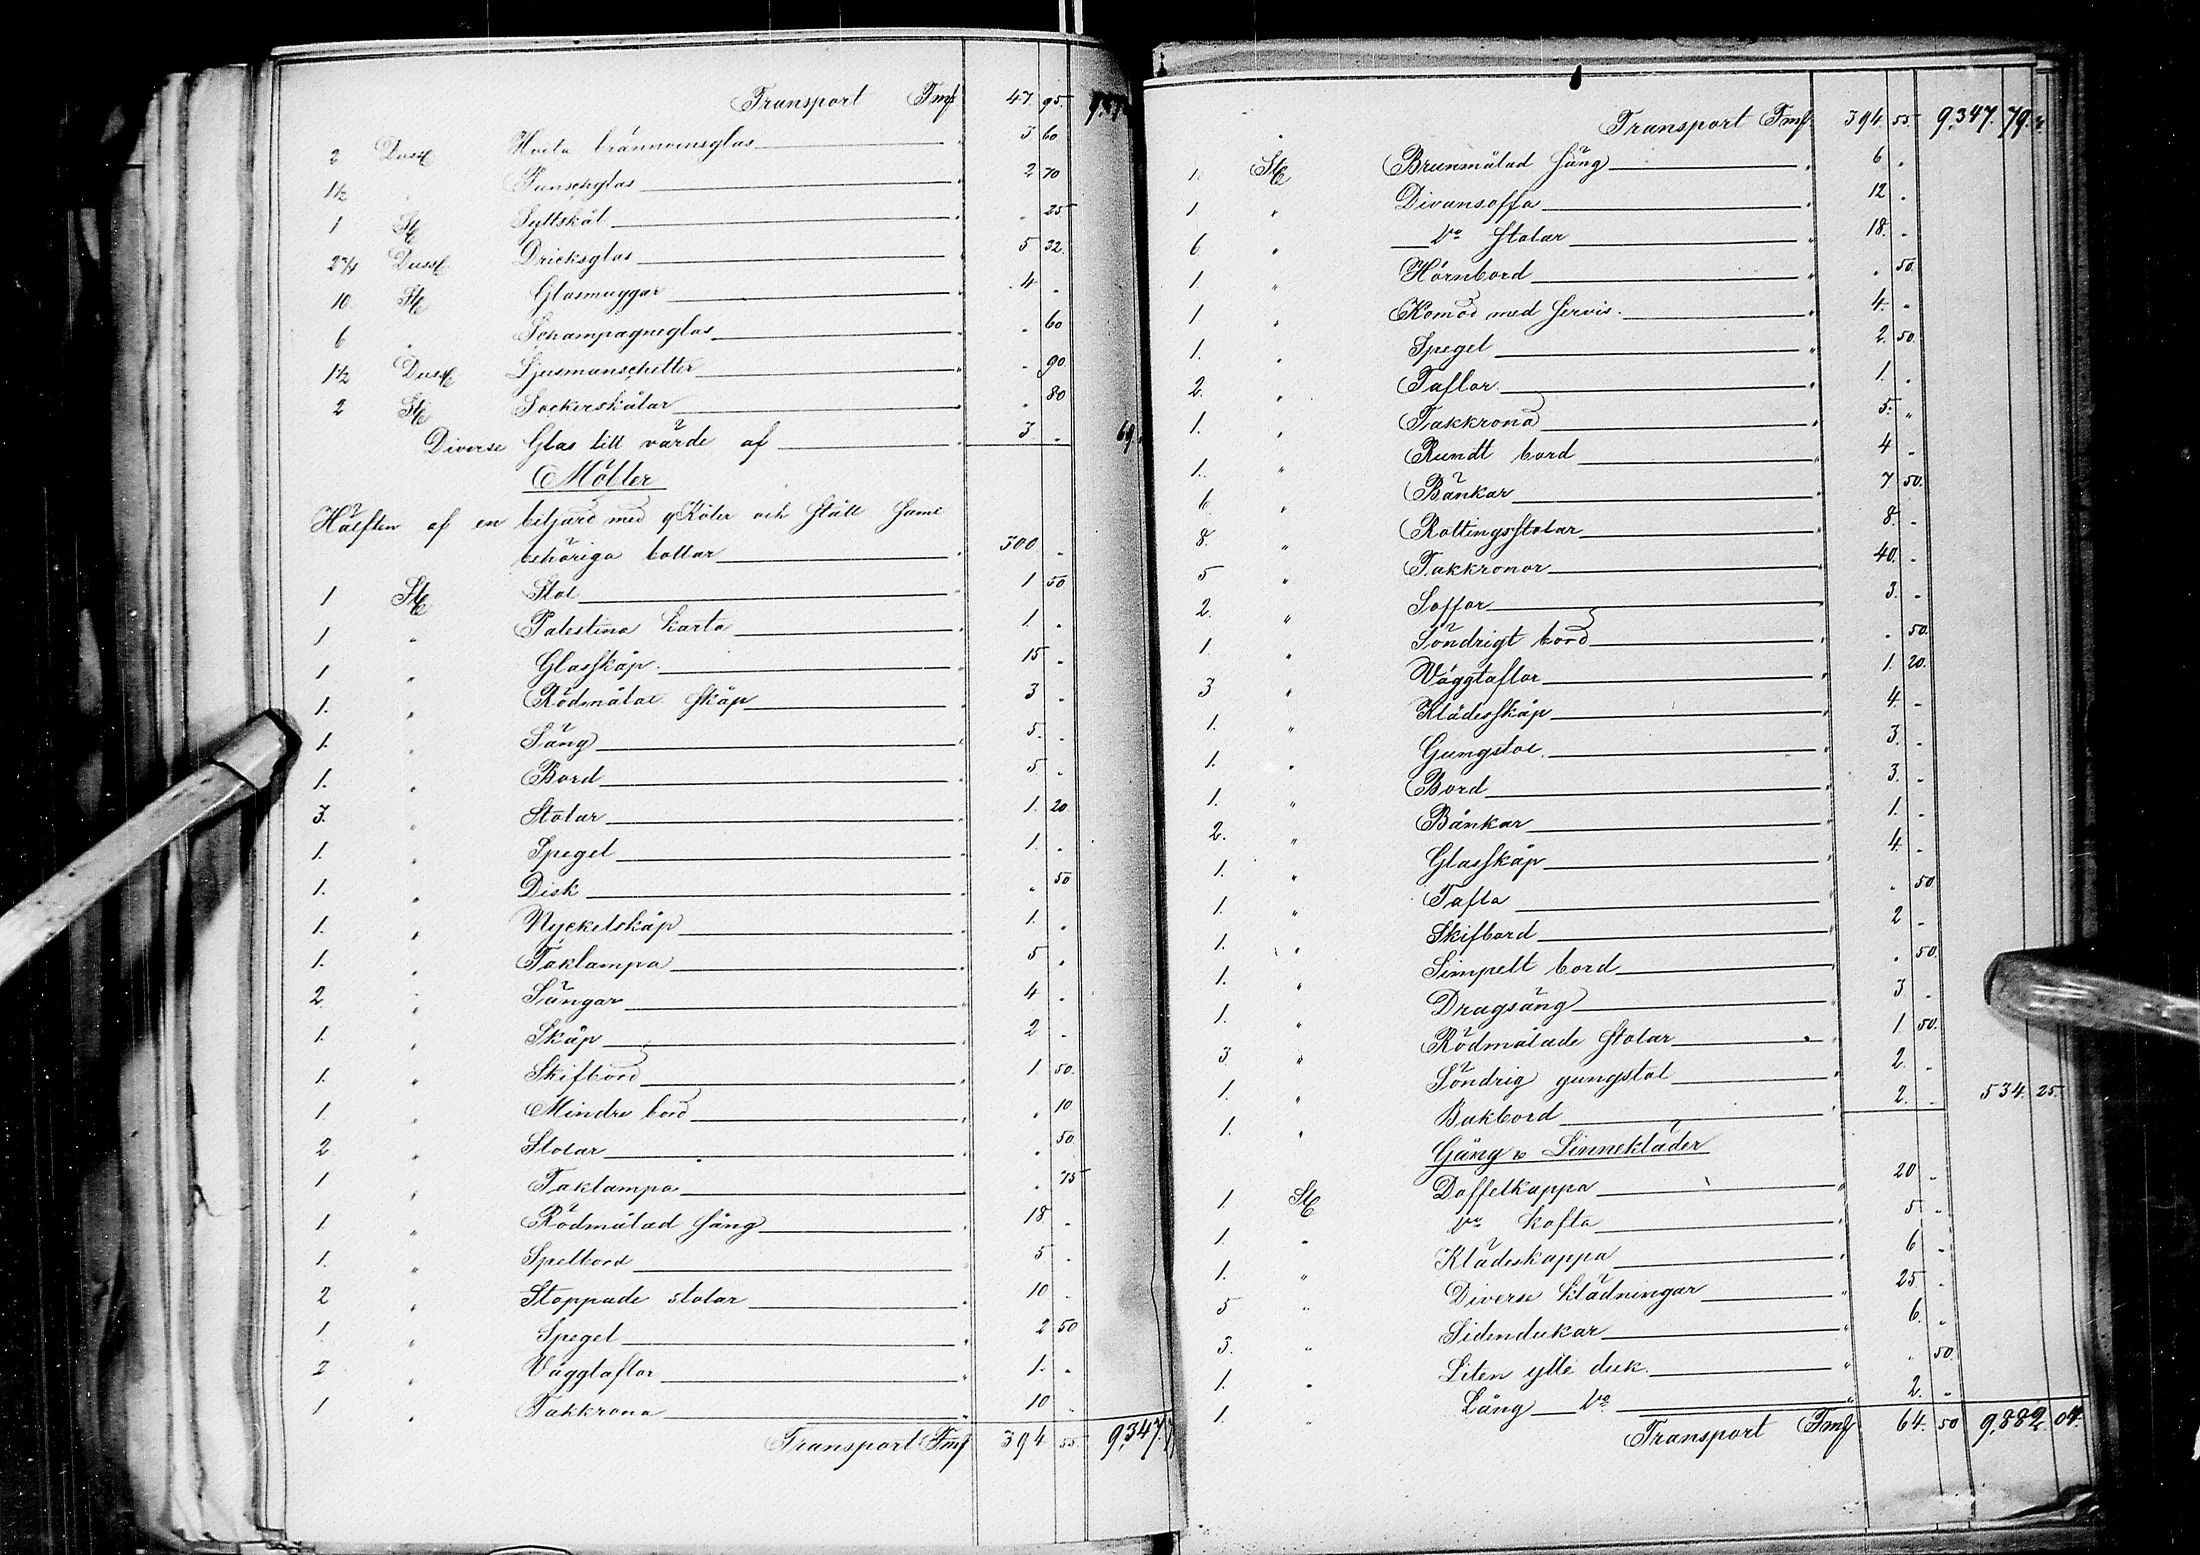 Transport Fmf 47. 95.
2 Duss Hvita brännvinsglas 3 60
1½ " Punschglas 2 70
1 St Syltskål " 25
2¾ Duss Dricksglas 5 32
10 St Glasmuggar 4 "
6 " Schampagneglas " 60
1½ Duss Ljusmanschetter " 90
2 St Sockerskålar " 80
Diverse Glas till värde af 3 " 69
Möbler
Hälften af en biljard med 9 Köer och ställ samt
behöriga bollar 300 "
1 St Stol 1 50
1 " Palestina karta 1. "
1 " Glasskåp 15 "
1. " Rödmålat skåp 3 "
1. " Säng 5. "
1. " Bord 5 "
3. " Stolar 1. 20
1. " Spegel 1. "
1. " Disk " 50
1. " Nyckelskåp 1. "
1. " Taklampa 5 "
2 " Sängar 4 "
1. " Skåp 2 "
1. " Skifbord 1 50.
1 " Mindre bord " 10
2 " Stolar " 50.
1 " Taklampa " 75
1. " Rödmålad säng 18 "
1. " Spelbord 5 "
2 " Stoppade stolar 10 "
1. " Spegel 2 50
2 " Väggtaflor 1. "
1 " Takkrona 10 "
Transport Fmf 394 55 9,347.
Transport Fmf 394 55 9,347. 79.
1. St Brunmålad säng 6 "
1 " Divansoffa 12 "
6 " D:o stolar 18. "
1 " Hörnbord " 50.
1 " Komod med servis. 4. "
1. " Spegel 2. 50.
2. " Taflor 1. "
1. " Takkrona 5. "
1. " Rundt bord 4 "
6 " Bänkar 7 50.
8. " Rottingsstolar 8. "
5 " Takkronor 40. "
2. " Soffor 3. "
1. " Söndrigt bord " 50.
3 " Väggtaflor 1. 20.
1. " Klädesskåp 4. "
1. " Gungstol. 3. "
1. " Bord 3. "
2. " Bänkar 1. "
1. " Glasskåp 4. "
1. " Tafla " 50
1. " Skifbord 2 "
1. " Simpelt bord " 50.
1. " Dragsäng 3 "
3. " Rödmålade stolar 1 50.
1. " Söndrig gungstol 2. "
1. " Bakbord 2. " 534. 25.
Gång & Linnekläder
1. St Doffelkappa 20 "
1. " D:o kofta 5 "
1. " Klädeskappa 6 "
5 " Diverse klädningar 25 "
3. " Sidendukar 6. "
1. " Liten ylle duk. " 50.
1. " Lång D:o 2. "
Transport Fmf 64. 50 9,882. 04.